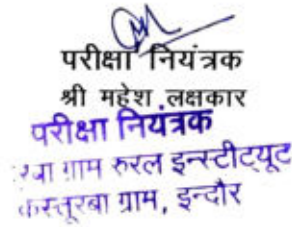 परीक्षा नियंत्रक
श्री महेश लक्षकार
परीक्षा नियंत्रक
ग्राम रुरल इन्स्टीट्यूट
कस्तूरबा ग्राम, इन्दौर